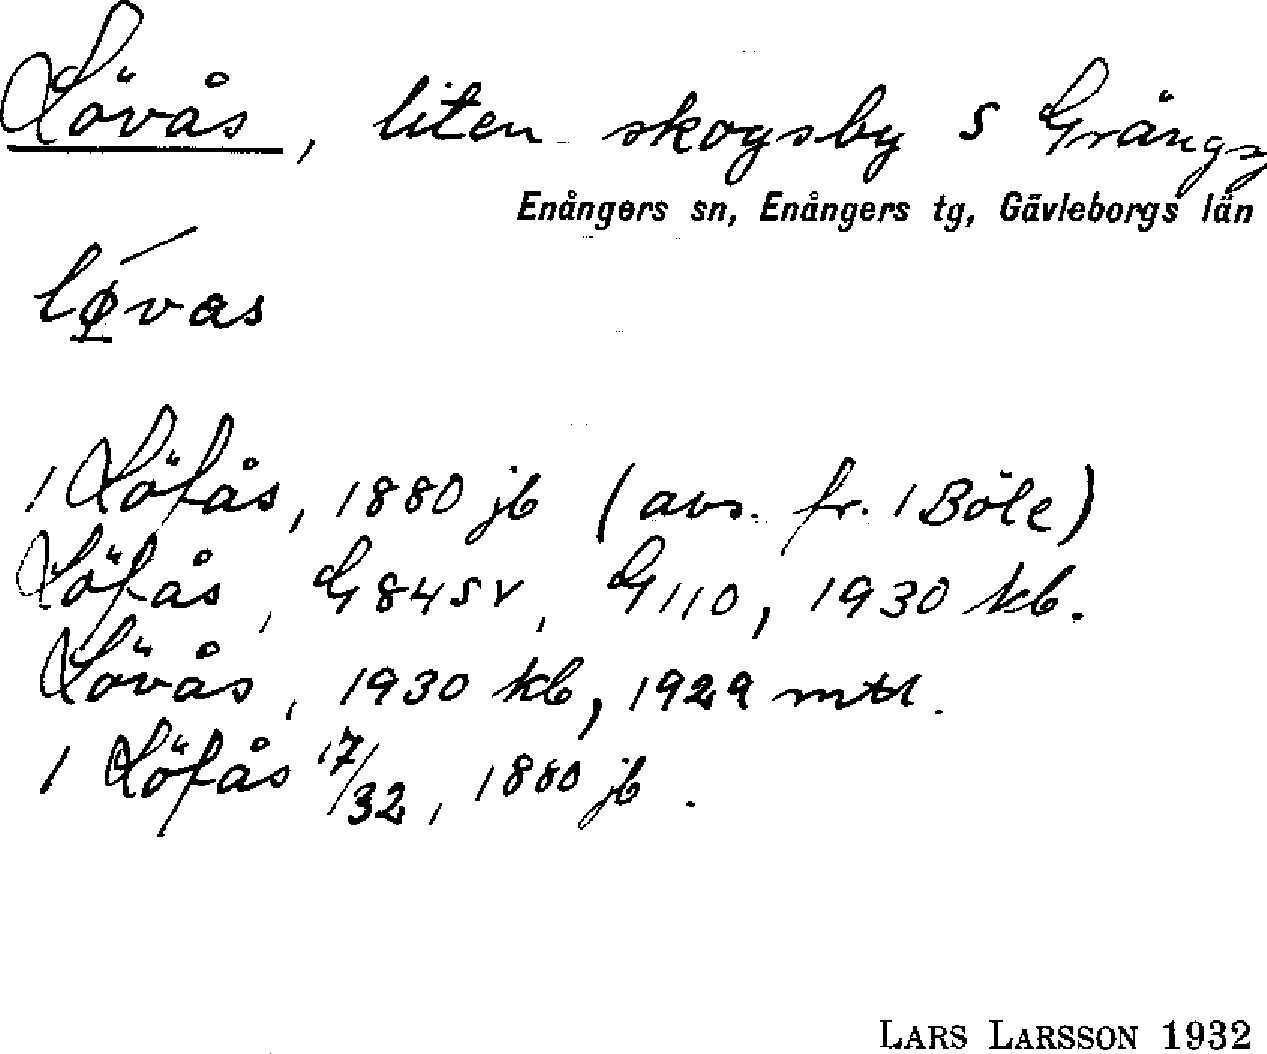 Lövås, liten skogsby S Grängs
Enångers sn, Enångers tg, Gävleborgs län
lǿ̱vas
1 Löfås, 1880 jb (avs. fr. 1 Böle)
Löfås, G 84 SV, G 110, 1930 kb.
Lövås, 1930 kb, 1929 mtl.
1 Löfås 17/32, 1880 jb.
LARS LARSSON 1932